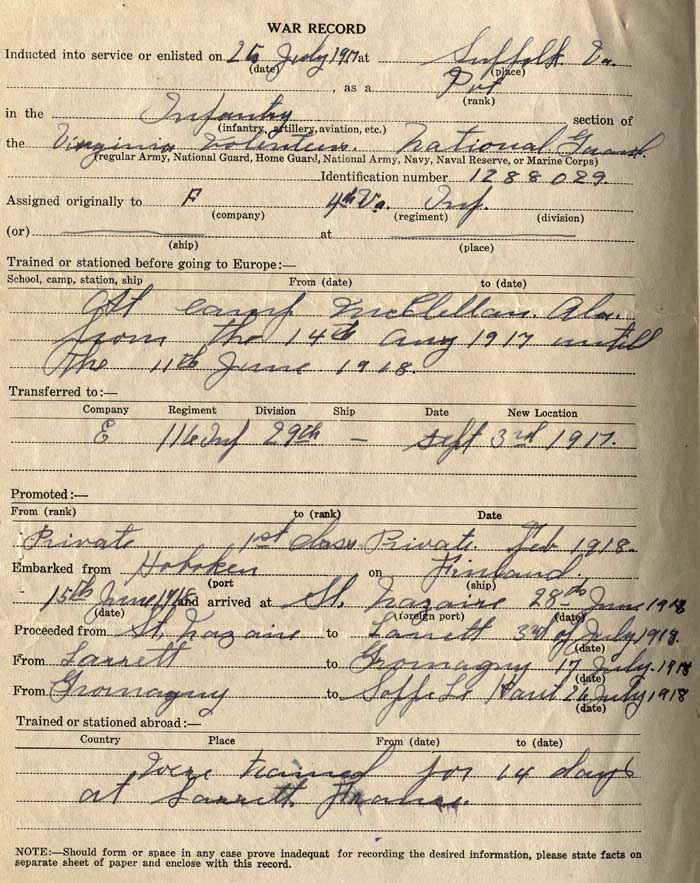 WAR RECORD
Inducted into service or enlisted on 25 July 1917 at Suffolk Va.
(date) (place)
, as a Pvt
(rank)
in the Infantry section of
(infantry, artillery, aviation, etc.)
the Virginia Volenteers. National Guard.
(regular Army, National Guard, Home Guard, National Army, Navy, Naval Reserve, or Marine Corps)
Identification number 1288029.
Assigned originally to F 4th Va. Inf.
(company) (regiment) (division)
(or) at
(ship) (place)
Trained or stationed before going to Europe:—
School, camp, station, ship From (date) to (date)
At camp McClellan. Ala.
from the 14th Aug 1917 untill
the 11th June 1918.
Transferred to:—
Company Regiment Division Ship Date New Location
E 116 Inf 29th — Sept 3rd 1917.
Promoted:—
From (rank) to (rank) Date
Private 1st class Private. Feb 1918.
Embarked from Hoboken on Finland
(port (ship)
15th June 1918 and arrived at St. Nazaire 28th June 1918
(date) (foreign port) (date)
Proceeded from St. Nazaire to 3rd of July 1918.
(date)
From Larrett to Gromagny 17 July. 1918
(date)
From Gromagny to Soppe Le Haut July 1918
(date)
Trained or stationed abroad:—
Country Place From (date) to (date)
Were trained for 14 days
at Larrett France.
NOTE:—Should form or space in any case prove inadequat for recording the desired information, please state facts on
separate sheet of paper and enclose with this record.